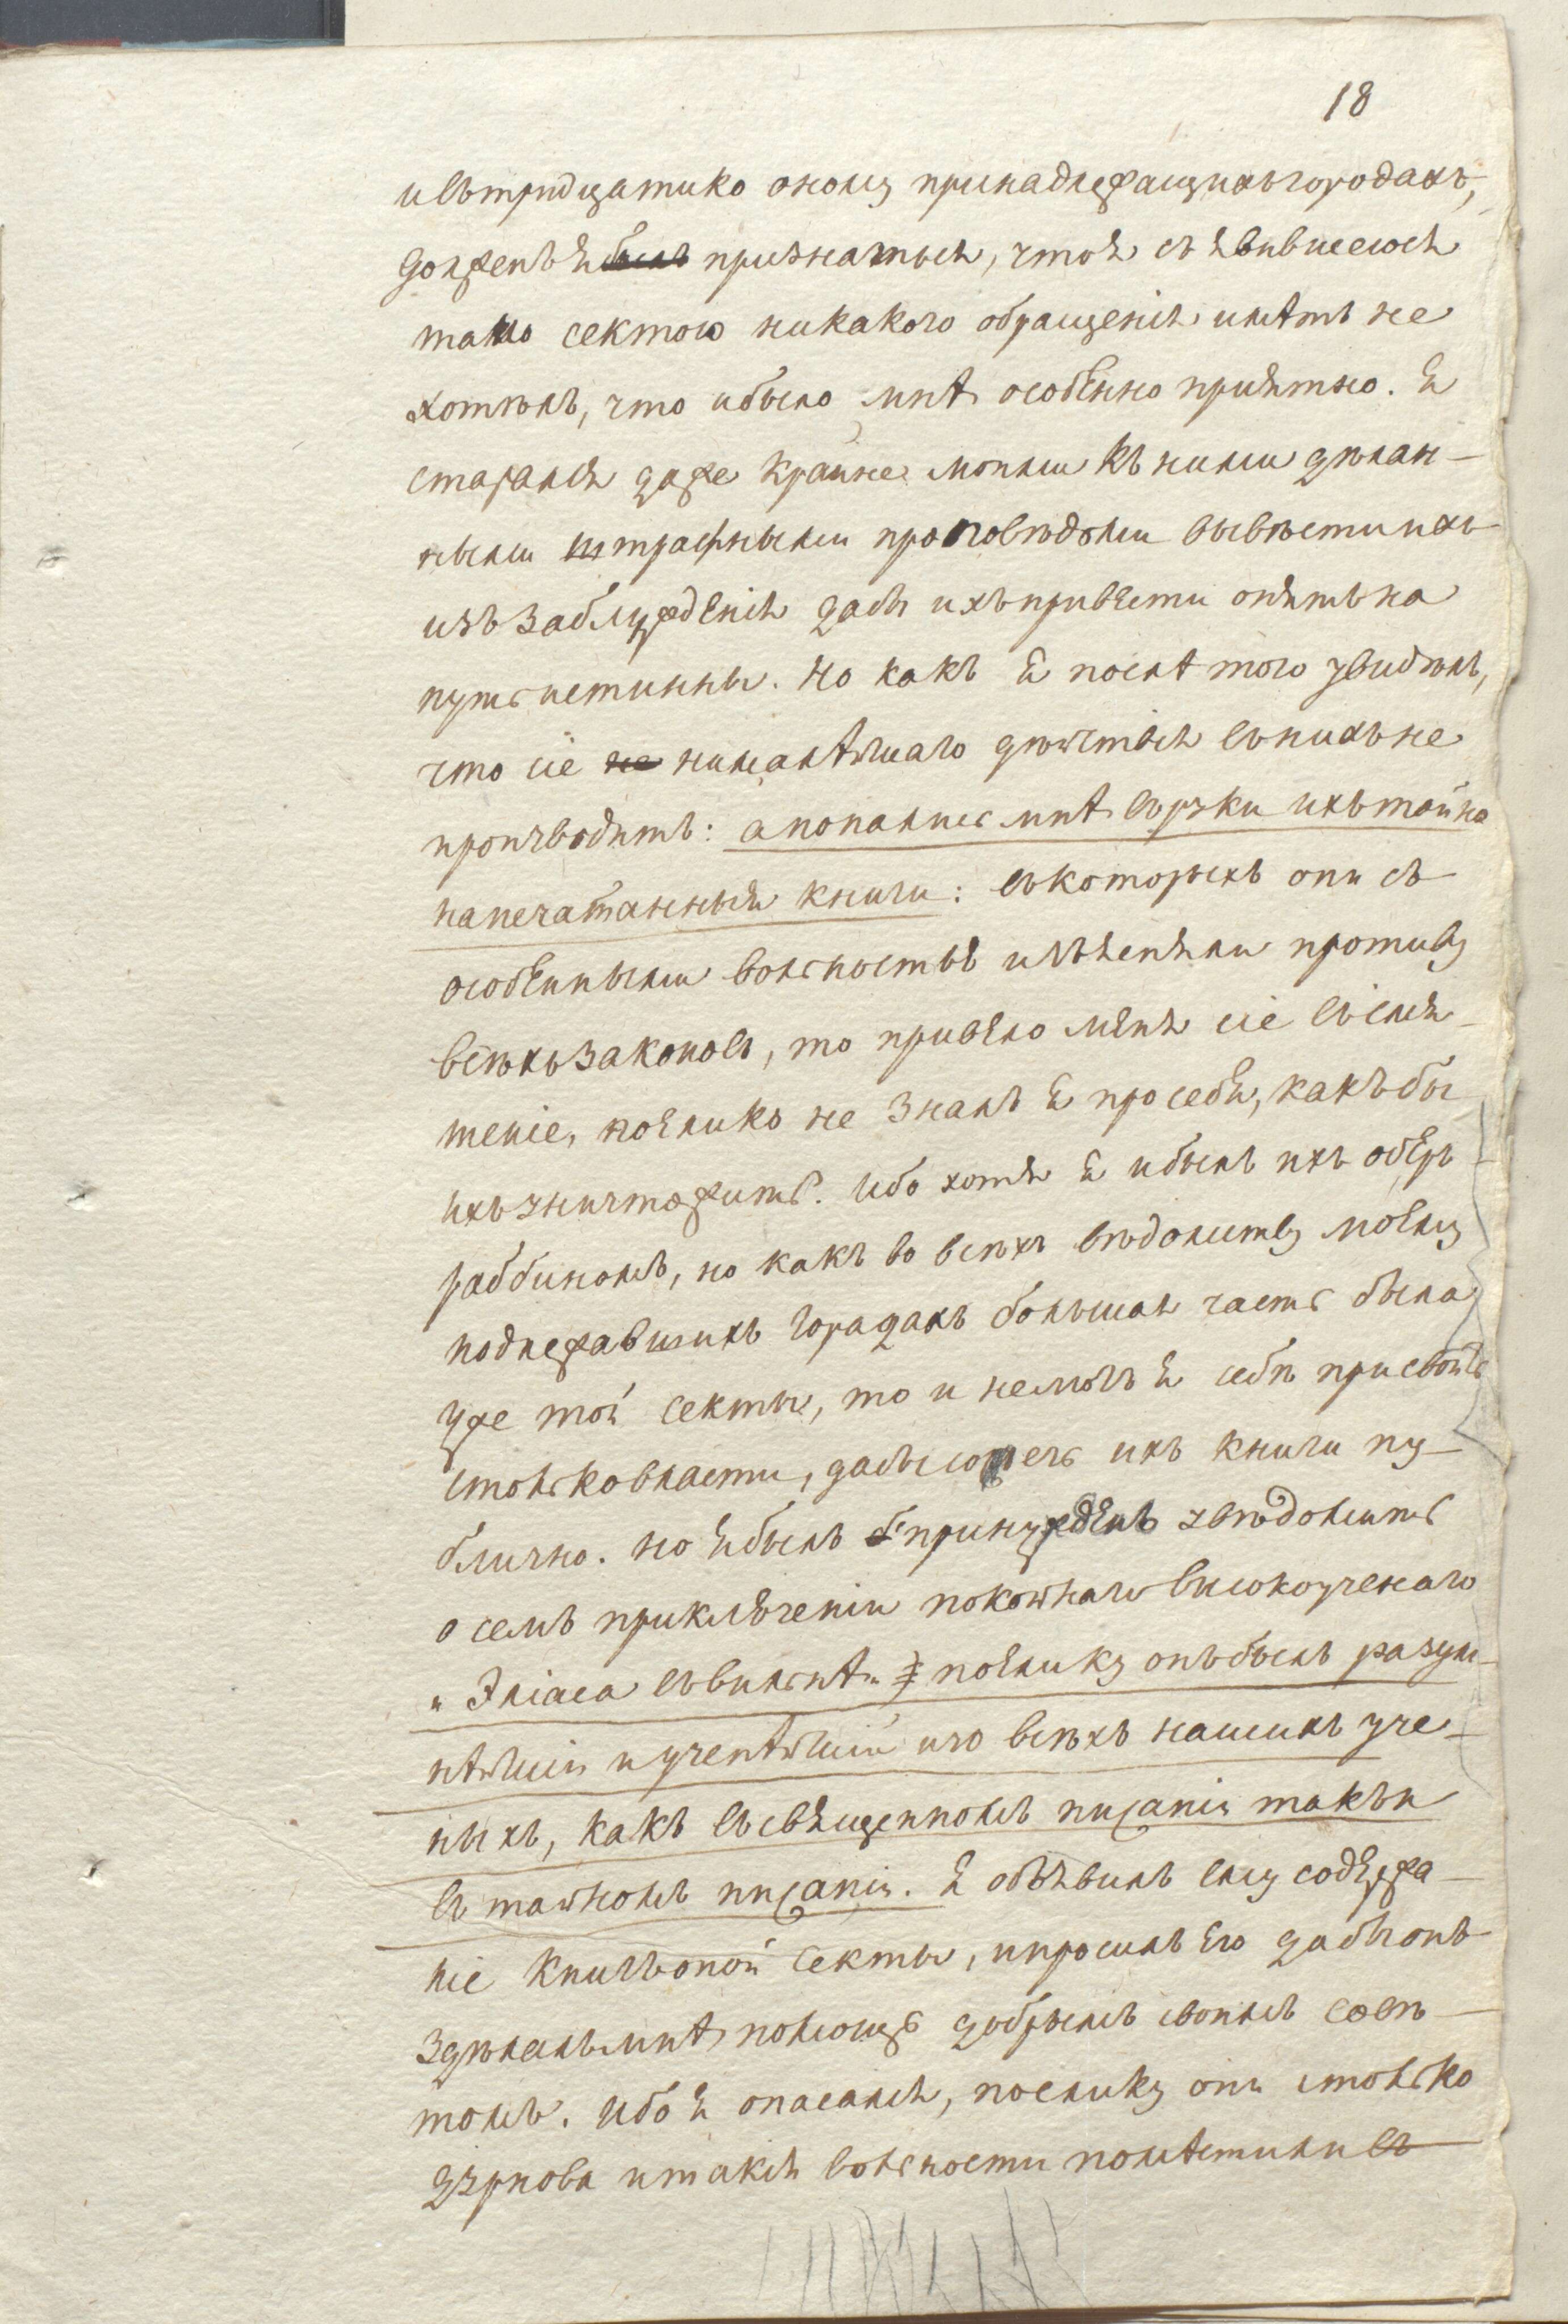 18
и въ тридцати ко оному принадлежащихъ городахъ,
долженъ я былъ признаться, что я съ явившеюся
тамо сектою никакого обращенія имѣть не
хотѣлъ, что и было мнѣ особенно приятно. Я
старался даже крайне моими къ ними дѣлан-
ными штрафными проповѣдьми вывѣсти ихъ
изъ заблужденія дабы ихъ привести опять на
путь истинны. Но какъ я послѣ того увидѣлъ,
что сіе не нималѣйшаго дѣйствія въ нихъ не
производитъ: а попались мнѣ въ руки ихъ тайно
напечатанныя книги: въ которыхъ они съ
особенными вольностьв изъясняли противу
всѣхъ законовъ, то привело меня сіе въ смя-
теніе, поелико не зналъ я про себя, какъ бы
ихъ уничтожить. Ибо хотя я и былъ ихъ оберъ-
раббиномъ, но какъ во всѣхъ вѣдомству моему
подлежавшихъ городахъ большая часть была
уже той секты, то и не могъ я себѣ присвоить
столько власти, дабы сожечь ихъ книги пу-
блично. Но я былъ принужденъ увѣдомить
о семъ приключеніи покойнаго высокоученаго
„Эліаса въ Вильнѣ„ поелику онъ былъ разум-
нѣйшій и ученѣйшій изо всѣхъ нашихъ уче-
ныхъ, какъ въ священномъ писаніи такъ и
въ тайномъ писаніи. Я объявилъ ему содержа-
ніе книгъ оной секты, и просилъ его дабы онъ
здѣлалъ мнѣ помощь добрымъ своимъ совѣ-
томъ. Ибо я опасался, поелику они столько
дурнова и такія вольности помѣстили въ